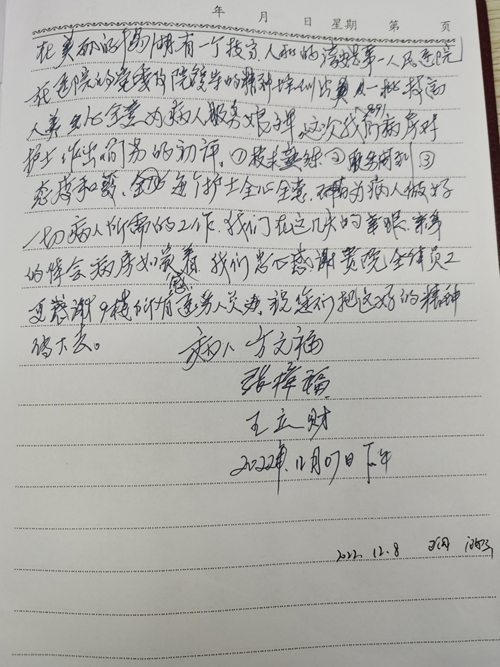 年 月 日 星期 第 页
在美丽的 湖有一个技高人和的清 县第一人民医院
在医院的党委内院领导的精神培训出真是一批技高
人美全心全意为病人服务娘子军。这次我们 病房对
护士作出简易的初评。①技术熟练②服务周到③
态度和蔼、 每个护士全心全意 为病人做好
一切病人所需的工作。我们在这几天的 亲身
的体会病房如 我们忠心感谢贵院全体员工
更感谢9楼所有医务人员 您们把这好的精神
大 。
病人 方文福
张 福
王立财
2022年12月07日下午
2022.12.8